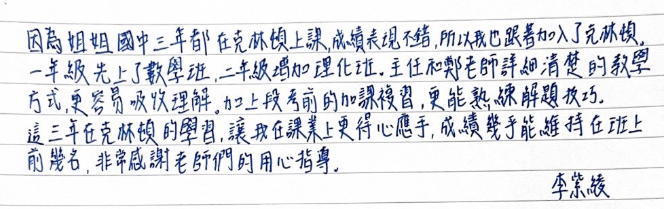 因為姐姐國中三年都在克林頓上課,成績表現不錯,所以我也跟著加入了克林頓。
一年級先上了數學班,二年級增加理化班。主任和鄭老師詳細清楚的教學
方式,更容易吸收理解。加上段考前的加課複習,更能熟練解題技巧。
這三年在克林頓的學習,讓我在課業上更得心應手,成績幾乎能維持在班上
前幾名,非常感謝老師們的用心指導。
李紫綾